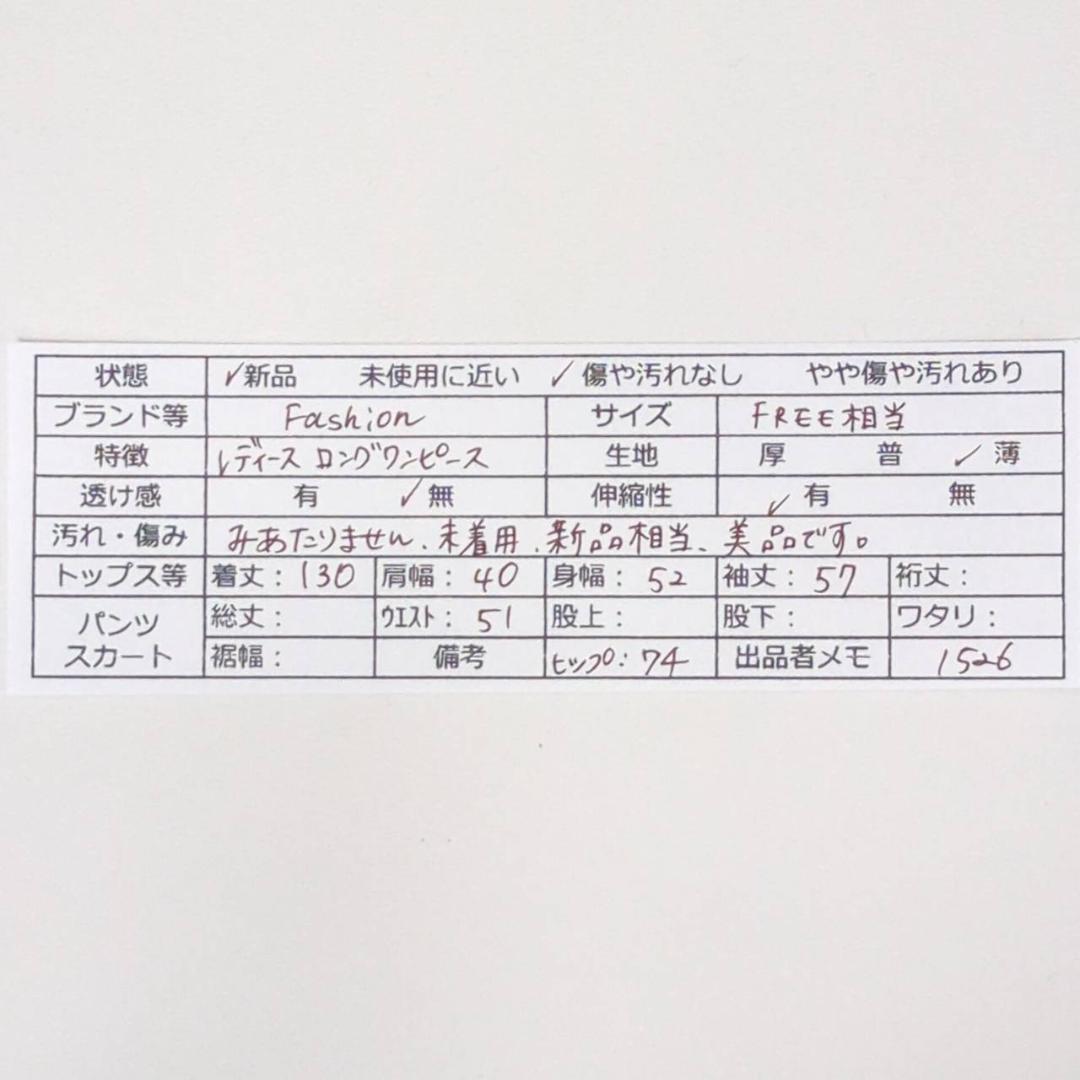 状態 ✓新品 未使用に近い ✓傷や汚れなし やや傷や汚れあり
ブランド等 Fashion サイズ FREE相当
特徴 レディース ロングワンピース 生地 厚 普 ✓薄
透け感 有 ✓無 伸縮性 ✓有 無
汚れ・傷み みあたりません、未着用、新品相当、美品です。
トップス等 着丈：130 肩幅：40 身幅：52 袖丈：57 裄丈：
パンツ スカート 総丈： ウエスト：51 股上： 股下： ワタリ：
裾幅： 備考 ヒップ：74 出品者メモ 1526